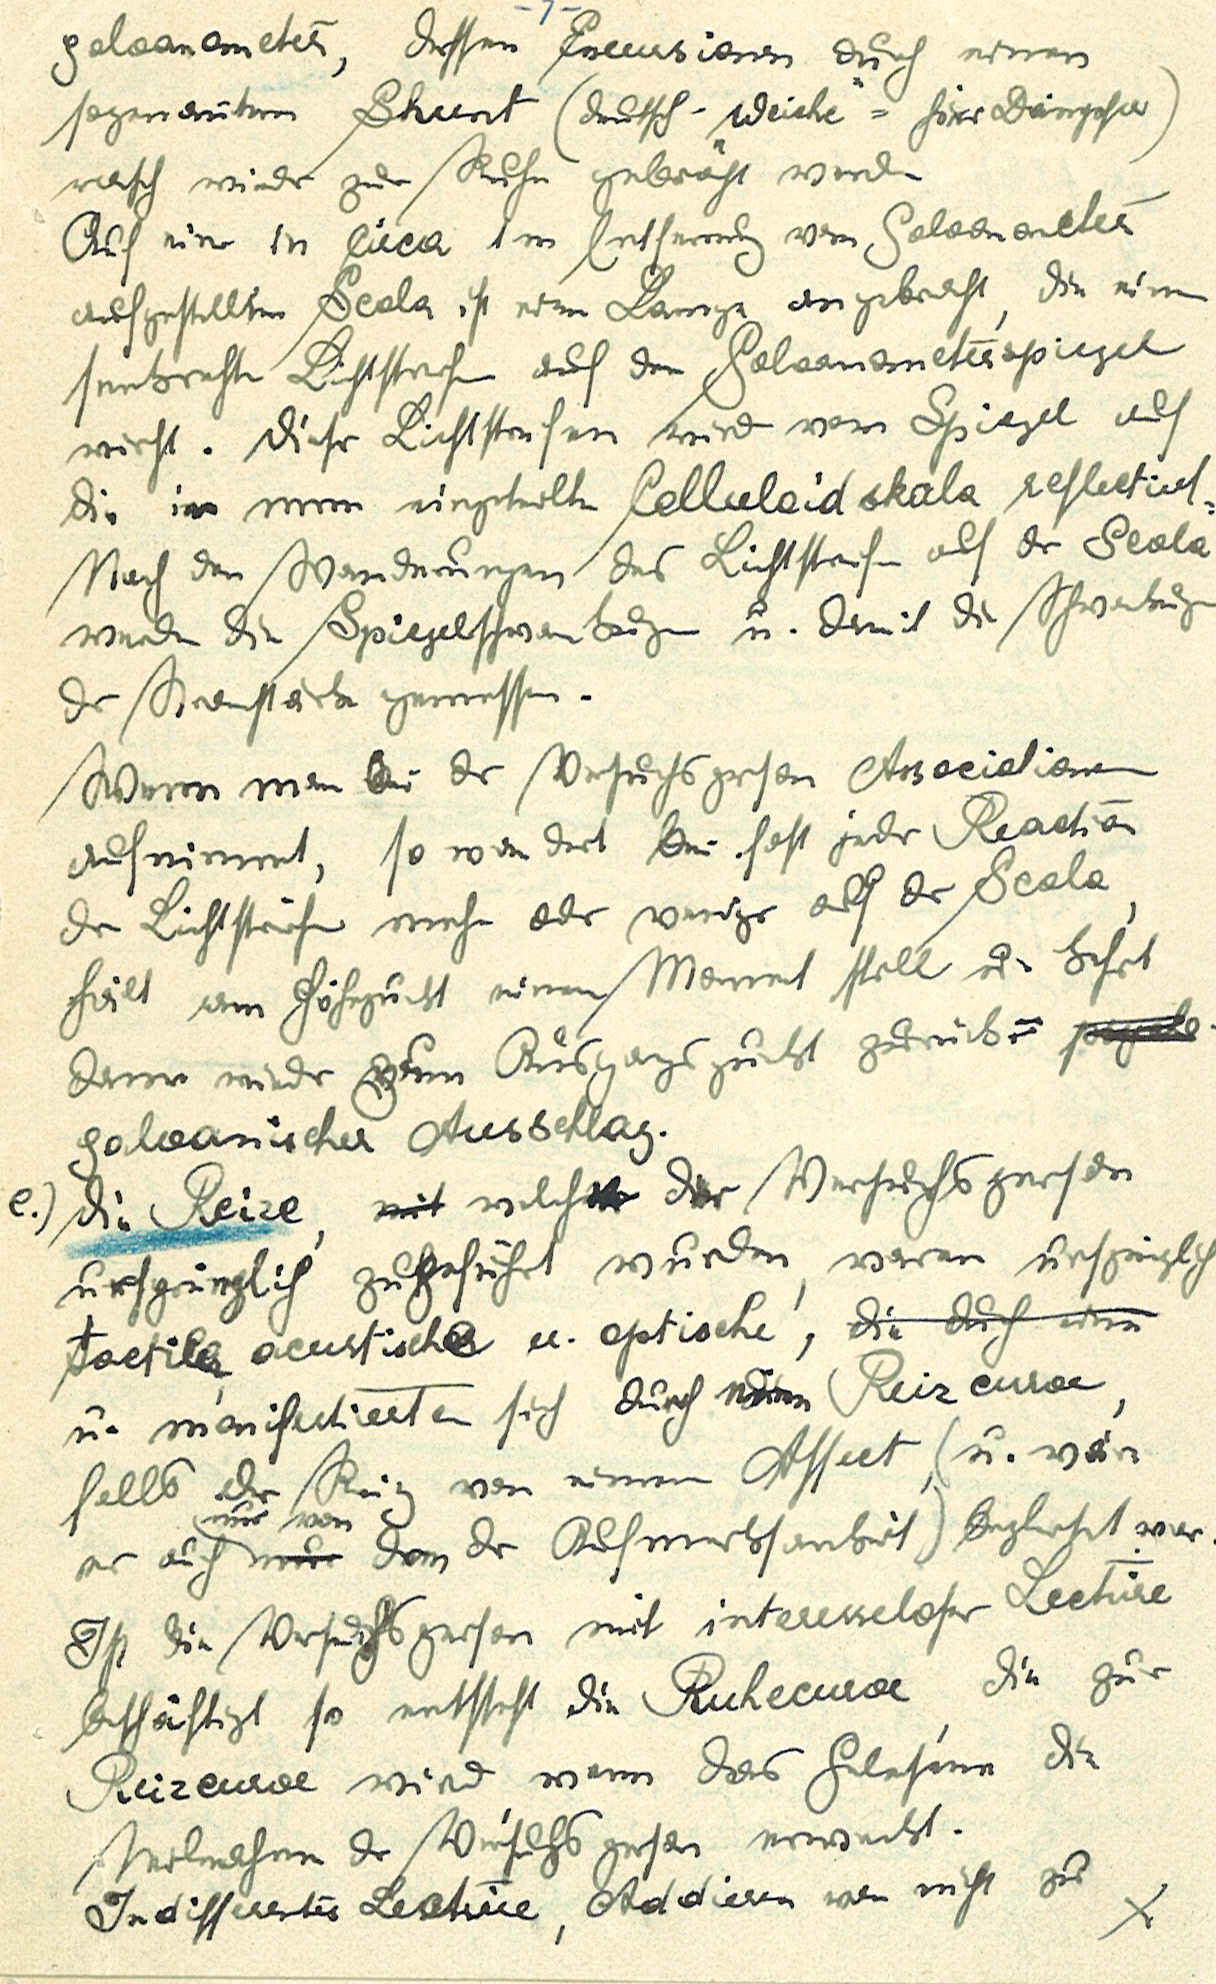 -7-
galvanometers, dessen Excursionen durch einen
sogenannten Shunt (deutsch - "Weiche" = hier Dämpfer)
rasch wieder zur Ruhe gebracht werden
Auf einer in circa 1 m Entfernung vom Galvanometer
aufgestellten Scala ist eine Lampe angebracht, die einen
senkrechten Lichtstreifen auf den Galvanometerspiegel
wirft. Dieser Lichtstreifen wird vom Spiegel auf
die in mm eingeteilte Celluloidskala reflectiert.
Nach den Wanderungen des Lichtstreifen auf der Scala
werden die Spiegelschwankungen u. damit die Schwankungen
der Stromstärke gemessen.
Wenn man bei der Versuchsperson Associationen
aufnimmt, so wandert bei fast jeder Reaction
der Lichtstreifen mehr oder weniger auf der Scala,
hält am Höhepunkt einen Moment still u. kehrt
dann wieder zum Ausgangspunkt zurück =
galvanischer Ausschlag.
e.) Die Reize, mit welche der Versuchsperson
ursprünglich zugeführt wurden, waren ursprünglich
tactile, acustische u. optische, die durch einen
u. manifestierten sich durch eine Reizcurve,
falls der Reiz von einem Affect (u. wäre
nur von
er auch nur dem der Aufmerksamkeit) begleitet war.
Ist die Versuchsperson mit interesseloser Lectüre
beschäftigt so entsteht die Ruhecurve, die zur
Reizcurve wird wenn das Gelesene die
Teilnahme der Versuchsperson erweckt.
Indifferente Lectüre, Addieren von nicht zu
X